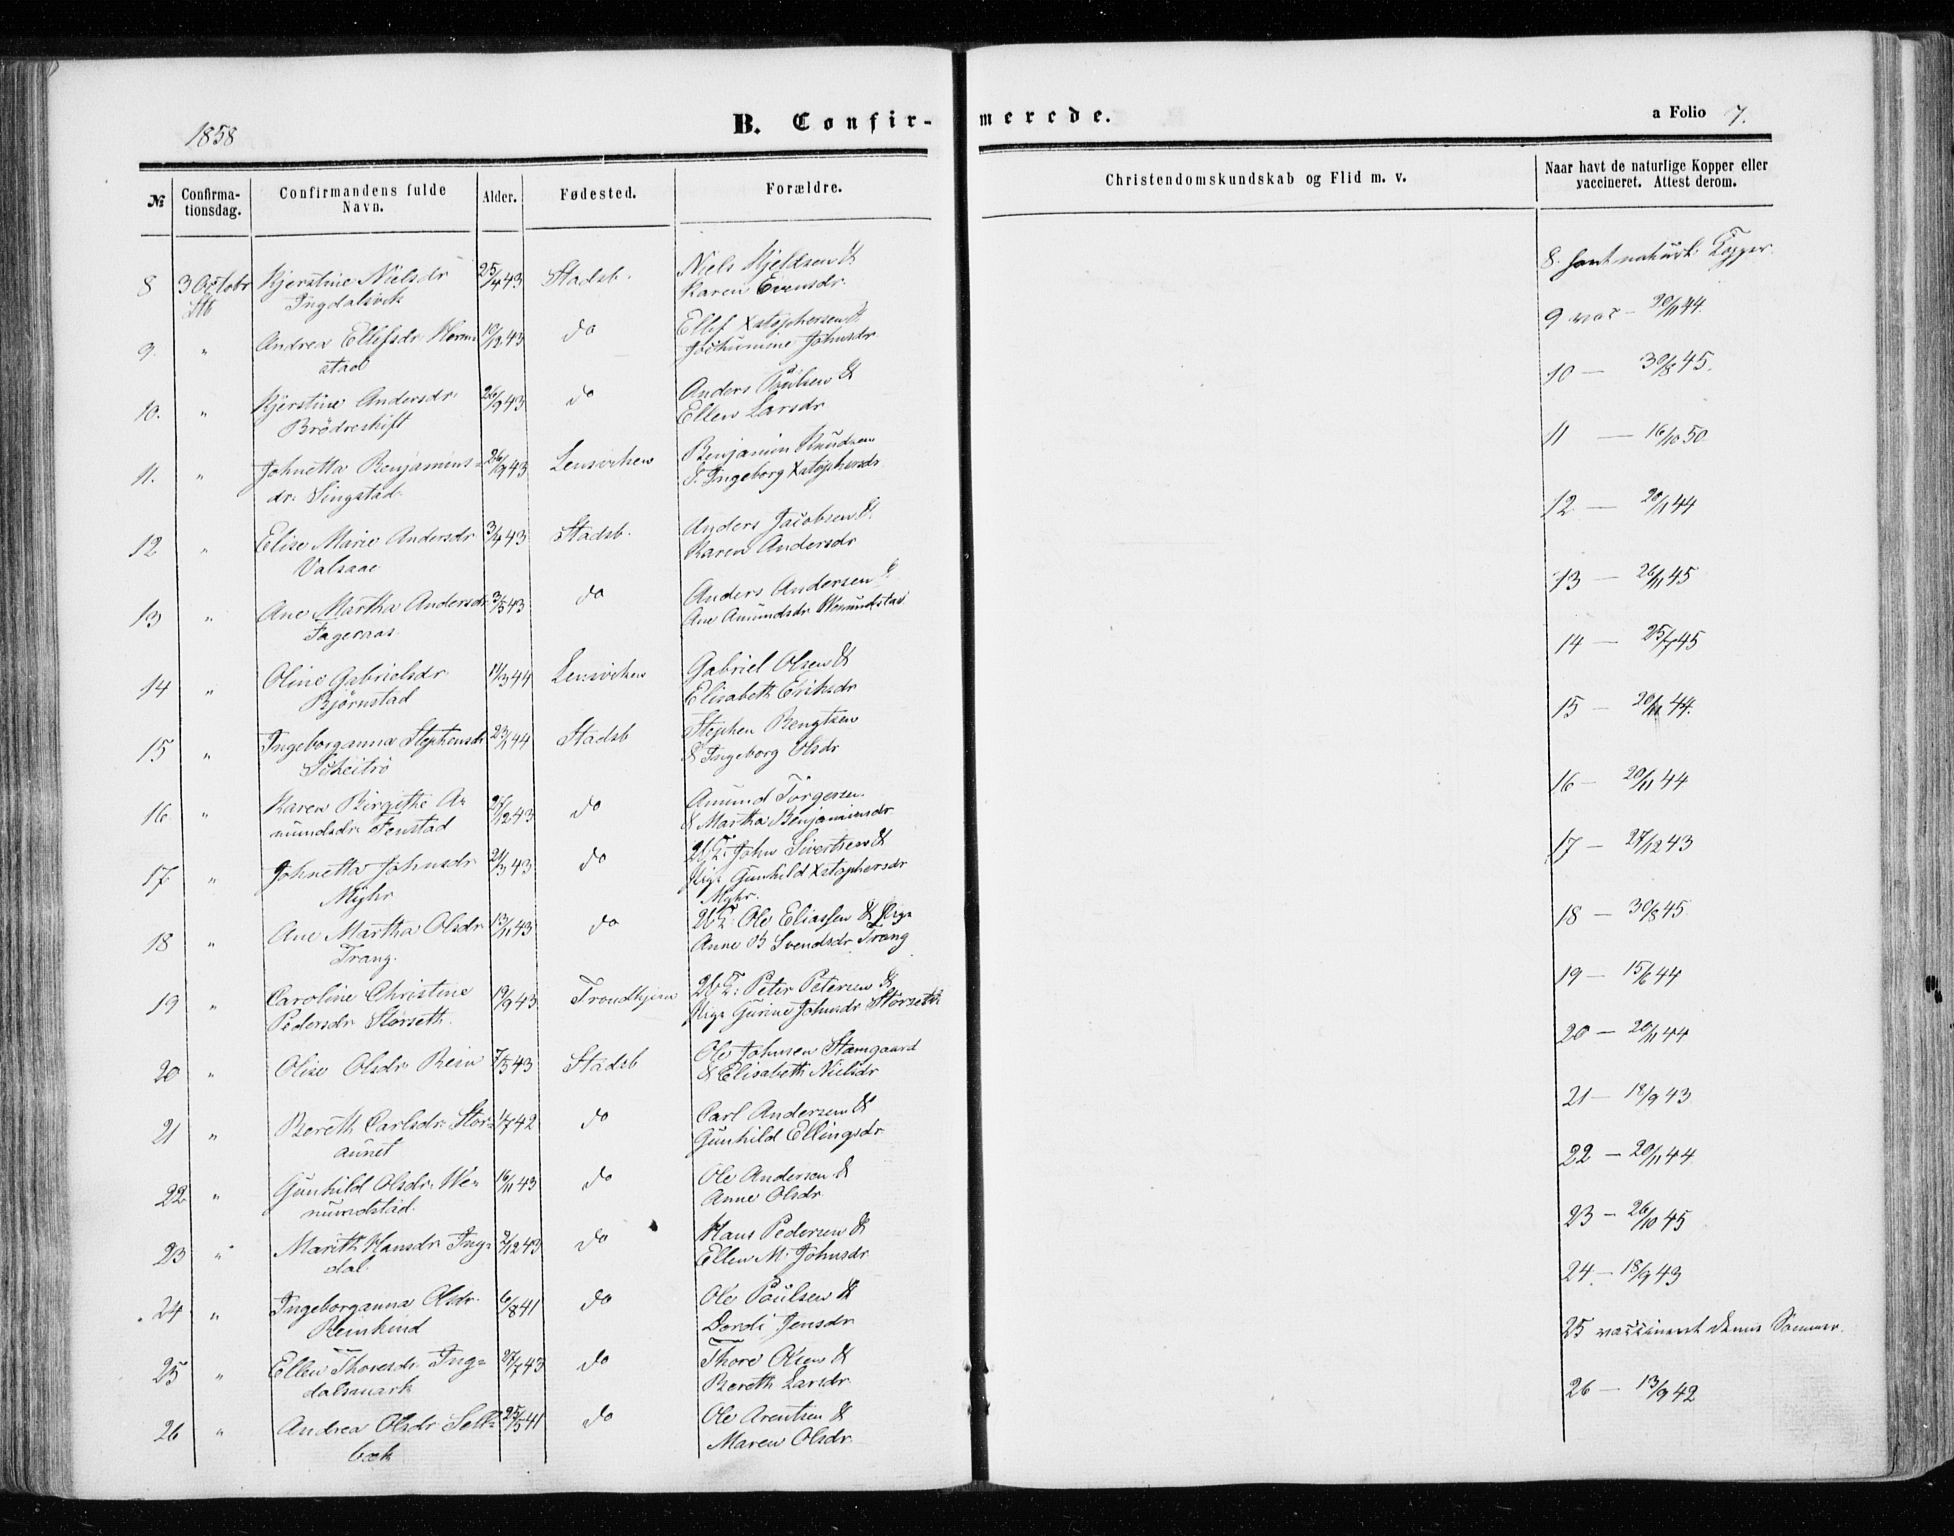 1858
B. Confir-
merede.
a Folio 7.
№
Confirma-
tionsdag.
Confirmandens fulde
Navn.
Alder.
Fødested.
Forældre.
Christendomskundskab og Flid m. v.
Naar havt de naturlige Kopper eller
vaccineret. Attest derom.
8 3 Octobr Kjerstine Nielsdr 25/4 43 Stadsb. Niels Kjeldsen &
Ingdalsvik Karen Evensdr.
9. " Andrea Ellefsdr 10/2 43 do Ellef Xstophersen &
stad Jochumine Johnsdr
10. " Kjerstine Andersdr. 26/9 43 do Anders Paulsen &
Brödreskift Ellen Larsdr
11. " Johnetta Benjamins- 26/9 43 Lensviken Benjamin Knudsen
dr. Singstad. & Ingeborg Xstophersdr
12 " Elise Marie Andersdr 3/4 43 Stadsb. Anders Jacobsen &
Valsaae Karen Andersdr
13 " Ane Martha Andersdr 3/5 43 do Anders Andersen &
Fageraas. Ane Amundsdr Wemundstad
14 " Oline Gabrielsdr. 11/3 44 Lensviken Gabriel Olsen &
Bjørnstad Elisabeth Eriksdr
15 " Ingeborganna Stephensdr 23/1 44 Stadsb Stephen Bengtsen
Scheitrö & Ingeborg Olsdr
16 " Karen Birgithe A- 27/12 43 do Amund Torgersen
mundsdr. Fenstad & Martha Benjaminsdr
17. " Johnetta Johnsdr 21/3 43 do John Sivertsen &
Myhr Pige Gunhild Xstophersdr
Myhr.
18 " Ane Martha Olsdr 13/11 43 do Ole Eliassen & Pige
Trang. Anne B Svendsdr Trang
19 " Caroline Christine 19/9 43 Trondhjem Peter Petersen &
Pedersdr Storseth. Pige Gurine Johnsdr Storseth
20 " Olise Olsdr Rein 7/5 43 Stadsb Ole Johnsen Stamgaard
& Elisabeth Nielsdr
21 " Bereth Carlsdr. Stor- 1/7 42 do Carl Andersen &
aunet Gunhild Ellingsdr
22 " Gunhild Olsdr. We- 16/11 43 do Ole Andersen &
mundstad. Anne Olsdr
23 " Marith Hansdr Ing- 2/12 43 do Hans Pedersen &
dal. Ellen M. Johnsdr
24 " Ingeborganna Olsdr. 6/8 41 do Ole Paulsen &
Reinkind Dordi Jensdr
25 " Ellen Thoresdr. Ing- 27/7 43 do Thore Olsen &
dalsmark Bereth Larsdr.
26 " Andrea Olsdr Selb- 25/5 41 do Ole Arentsen &
bæk Maren Olsdr.
8. havt naturl. Kopper.
9 vac - 20/11 44.
10 — 30/8 45.
11 — 16/10 50
12 — 20/11 44
13 — 26/11 45
14 — 25/7 45
15 — 20/11 44.
16 — 20/11 44
17 — 27/12 43
18 — 30/8 45
19 — 15/6 44
20 — 20/11 44
21 — 18/9 43
22 — 20/11 44
23 — 26/10 45
24 — 18/9 43
25 vaccineret denne Sommer.
26 — 13/9 42